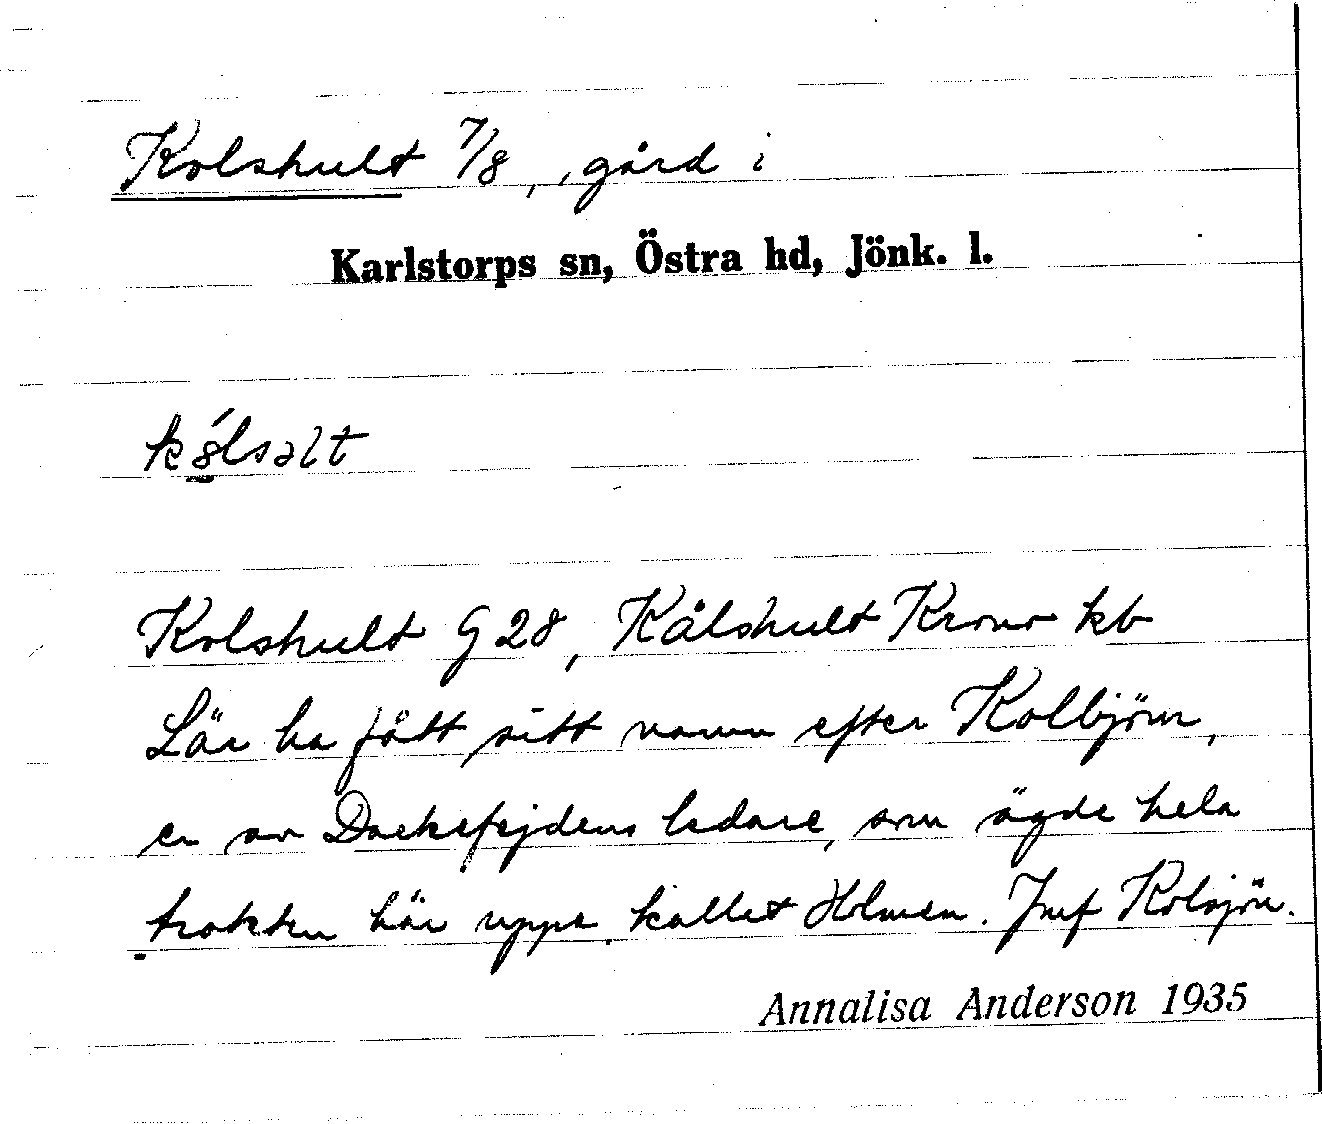 Kolshult 7/8, gård i
Karlstorps sn, Östra hd, Jönk. l.
kólsəlt
Kolshult G 28, Kålshult Krono kb
Lär ha fått sitt namn efter Kolbjörn,
en av Dackefejdens ledare, som ägde hela
trakten här uppe, kallat Holmen. Jmf Kolsjön.
Annalisa Anderson 1935